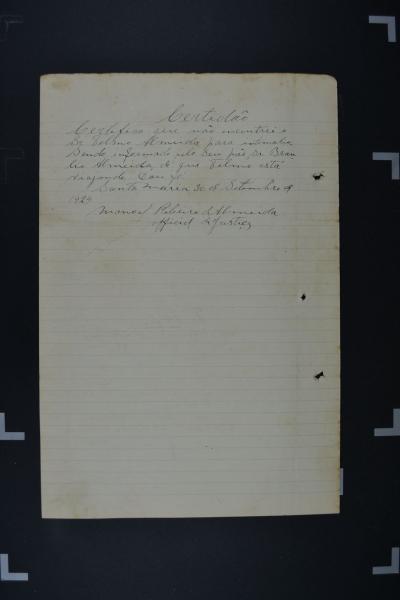 Certidão
Certifico que não encontrei o
Sr Telmo Almeida para intimal-o
Sendo informado pelo Seu pae, Sr Brau
lio Almeida, de que Telmo está
Santa Maria 30 de Setembro de
1929
Manoel Ribeiro de Almeida
official de Justiça